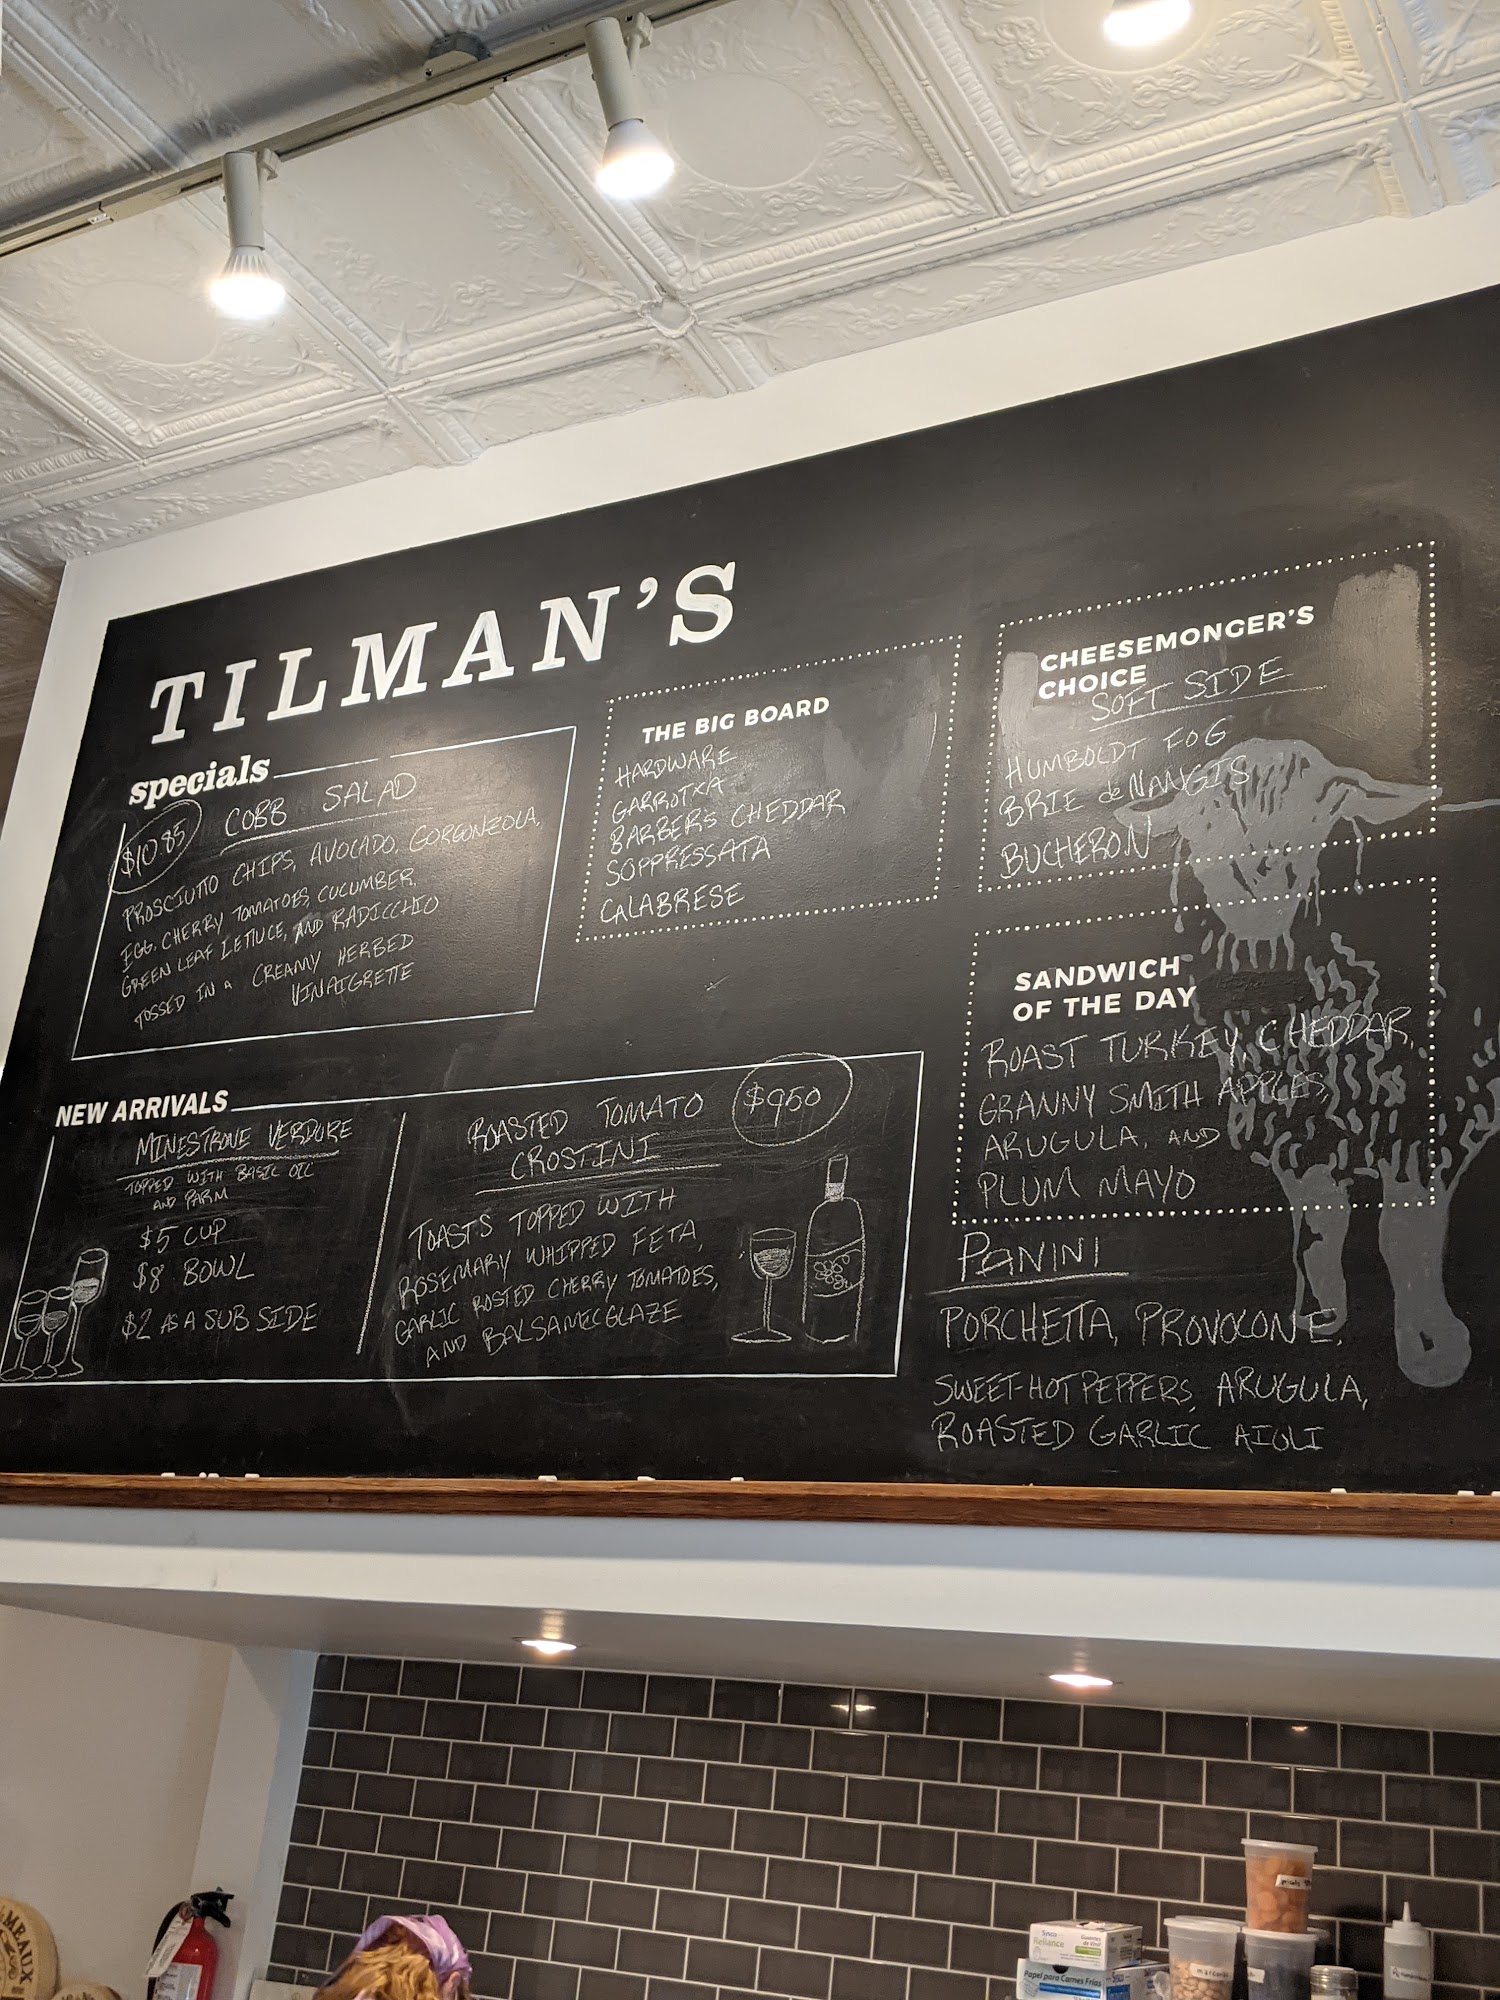 TILMAN'S
specials
$10.85
COBB SALAD
PROSCIUTTO CHIPS, AVOCADO, GORGONZOLA,
EGG, CHERRY TOMATOES, CUCUMBER,
GREEN LEAF LETTUCE, AND RADICCHIO
TOSSED IN a CREAMY HERBED
VINAIGRETTE
THE BIG BOARD
HARDWARE
GARROTXA
BARBERS CHEDDAR
SOPPRESSATA
CALABRESE
CHEESEMONGER'S
CHOICE
SOFT SIDE
HUMBOLDT FOG
BRIE de NANGIS
BUCHERON
SANDWICH
OF THE DAY
ROAST TURKEY, CHEDDAR,
GRANNY SMITH APPLES,
ARUGULA, AND
PLUM MAYO
PANINI
PORCHETTA, PROVOLONE,
SWEET-HOT PEPPERS, ARUGULA,
ROASTED GARLIC AIOLI
NEW ARRIVALS
MINESTRONE VERDURE
TOPPED WITH BASIL OIL
AND PARM
$5 CUP
$8 BOWL
$2 AS A SUB SIDE
ROASTED TOMATO
CROSTINI
$950
TOASTS TOPPED WITH
ROSEMARY WHIPPED FETA,
GARLIC ROSTED CHERRY TOMATOES,
AND BALSAMIC GLAZE
MEAUX
Sysco
Reliance
Guantes
de Vinil
Papel para Carnes Frias
Sysco